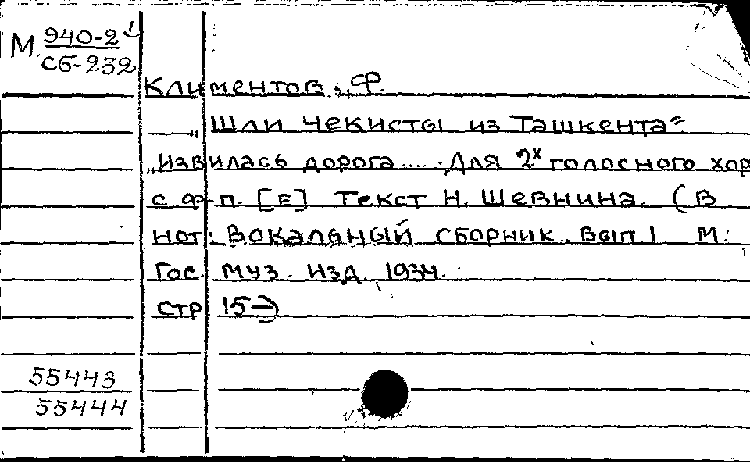 М 940-2
Сб-232
Климентов, Ф.
„Шли чекисты из Ташкента"
„Извилась дорога..... Для 2х голосного хор
с ф-п. [E] Текст Н. Шевнина. (В
нот: Вокальный сборник. Вып 1 М.
Гос. муз. изд. 1934.
стр 15-)
55443
55444